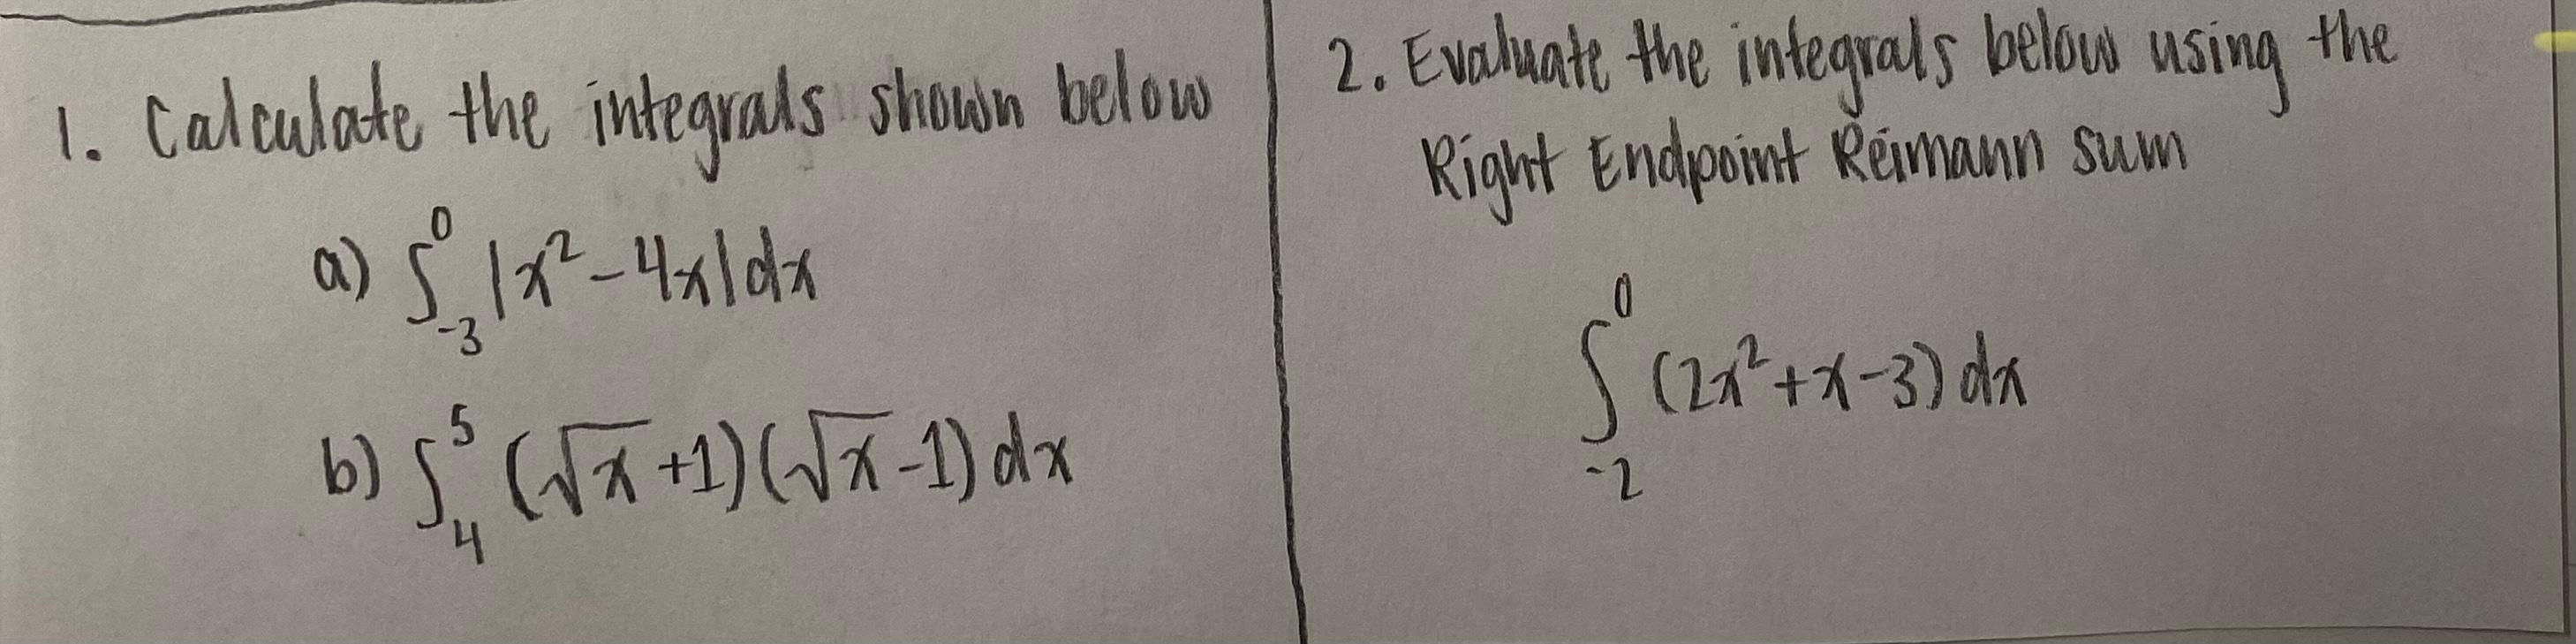 1. Calculate the integrals shown below
a) ∫₋₃⁰ |x² - 4x| dx
b) ∫₄⁵ (√x + 1)(√x - 1) dx
2. Evaluate the integrals below using the
Right Endpoint Reimann sum
∫₋₂⁰ (2x² + x - 3) dx